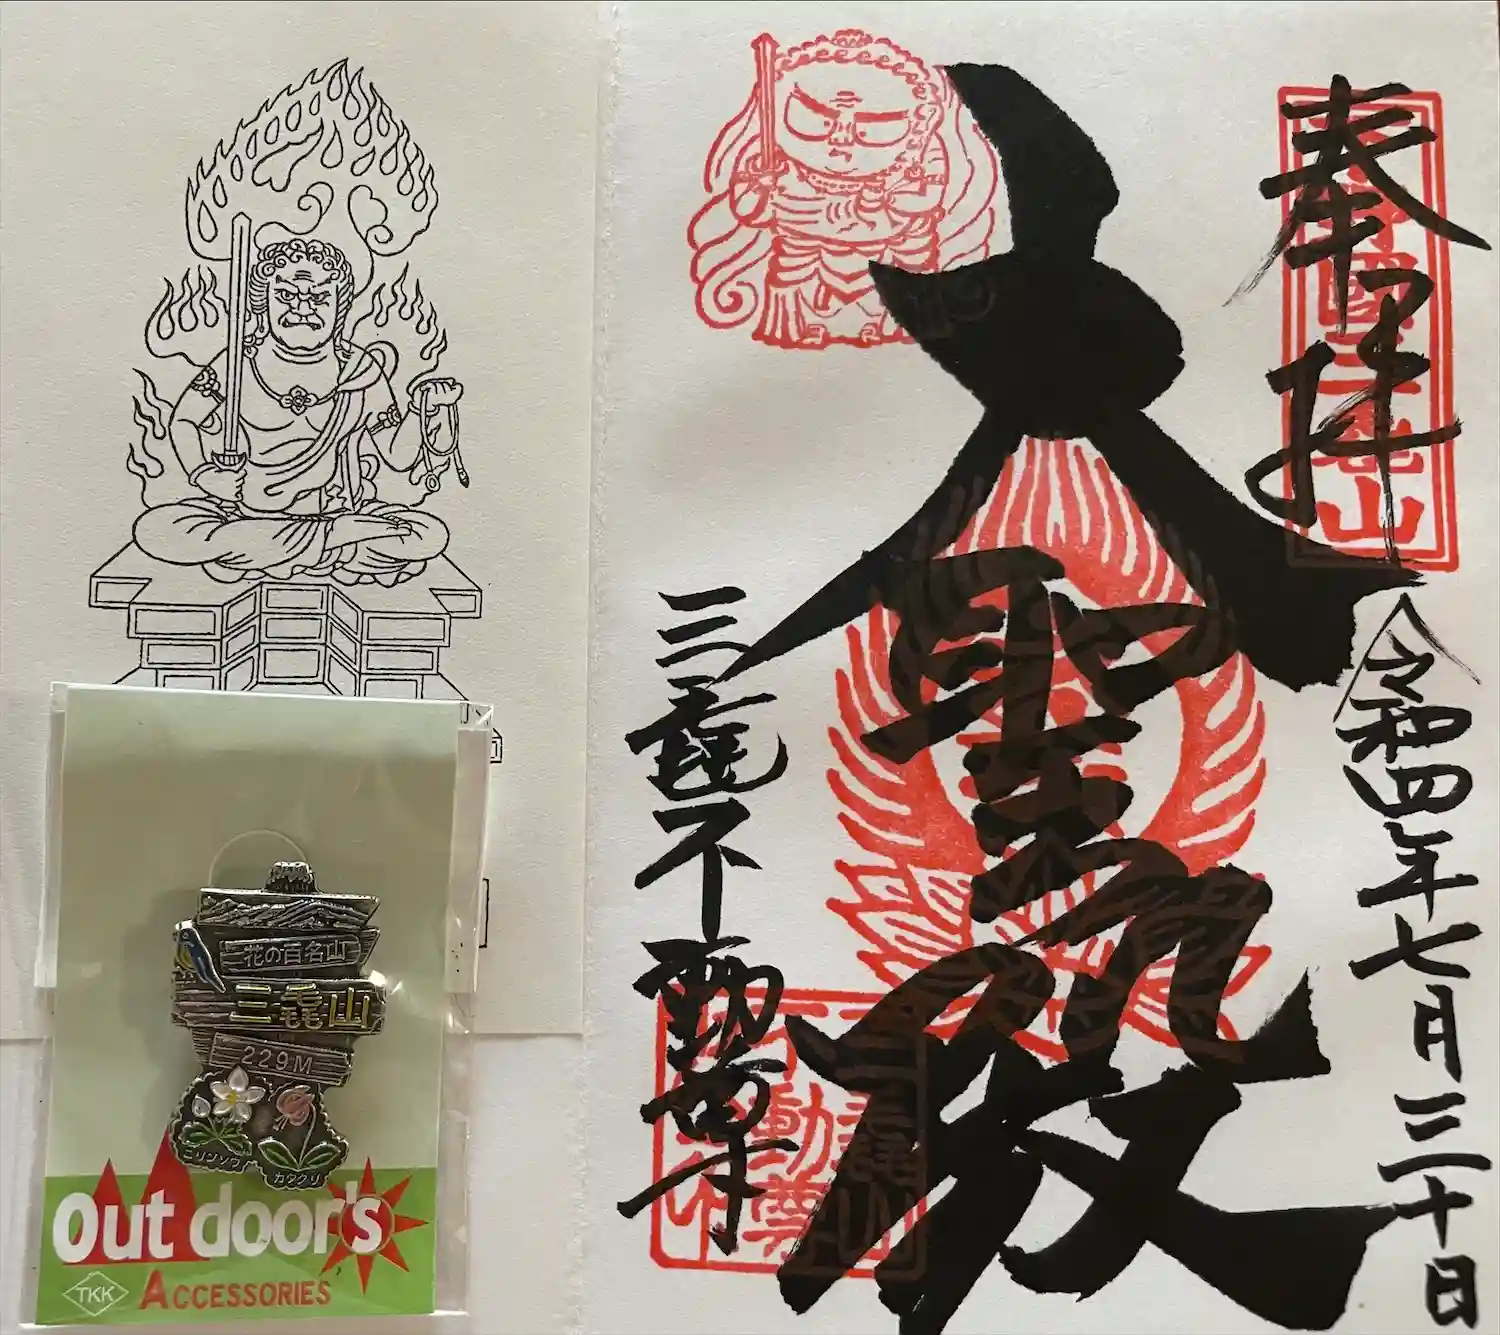 奉拝
下野國三毳山
令和四年七月三十日
大聖殿
三毳不動尊
花の百名山
三毳山
229M
ニリンソウ
カタクリ
Outdoor's
TKK
ACCESSORIES